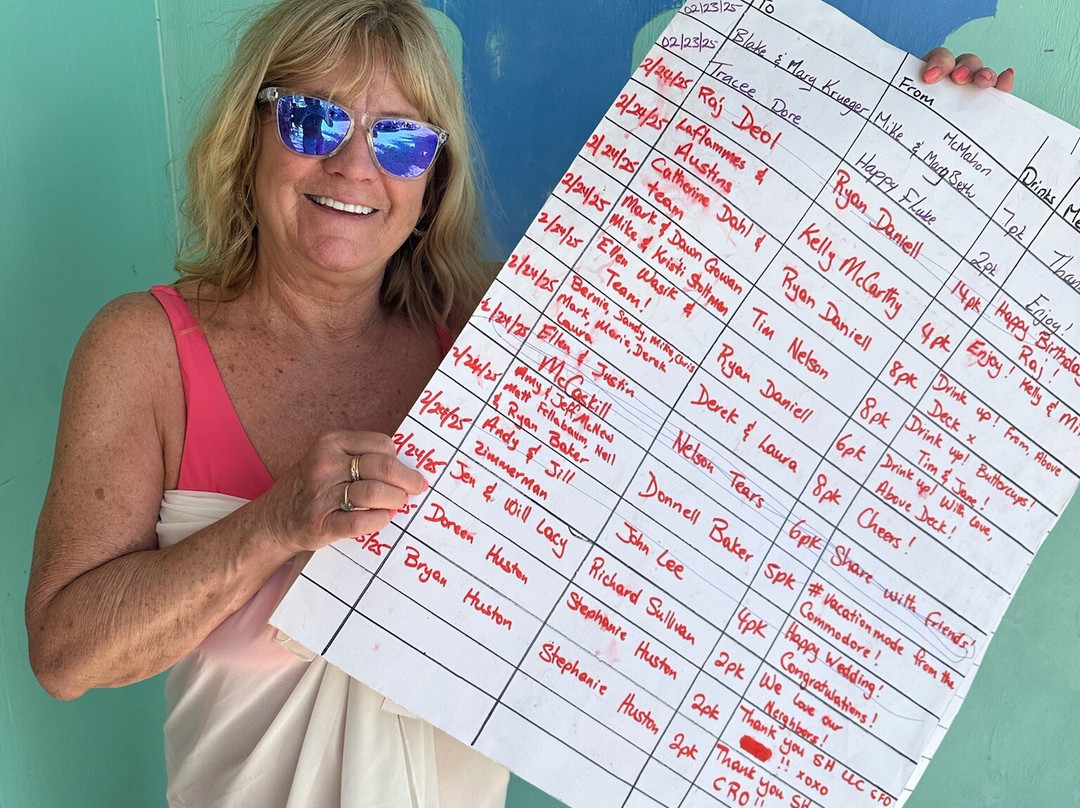 To From Drinks
02/23/25 Blake & Mary Krueger Mike & MaryBeth McMahon 7pk
02/23/25 Tracee Dore Happy Fluke 2pk Enjoy!
2/24/25 Raj Deol Ryan Daniell 14pk Happy Birthday Raj!
2/24/25 Laflammes & Austins Kelly McCarthy 4pk Enjoy! Kelly &
2/24/25 Catherine Dahl & team Ryan Daniell 8pk Drink up! From, Above Deck x
2/24/25 Mark & Dawn Gowan Mike & Kristi Stoltman Tim Nelson 8pk Drink up! Buttercups! Tim & Jane!
2/24/25 Ellen Wasik & Team! Ryan Daniell 6pk Drink up! With Love, Above Deck!
2/24/25 Bernie, Sandy, Mike, Chris Mark, Marie, Derek Laura Derek & Laura 8pk Cheers!
2/24/25 Ellen & Justin McCaskill Nelson Tears 6pk Share with friends!
2/24/25 Amy & Jeff McNew Matt Fellabaum, Neil & Ryan Baker Donnell Baker 5pk #vacationmode from the Commodore!
2/24/25 Andy & Jill Zimmerman John Lee 4pk Happy Wedding! Congratulations!
2/24/25 Jen & Will Lacy Richard Sullivan 2pk We love our Neighbors!
Doreen Huston Stephanie Huston 2pk Thank you SH LLC CFO !! xoxo
Bryan Huston Stephanie Huston 2pk Thank you SH CRO!!